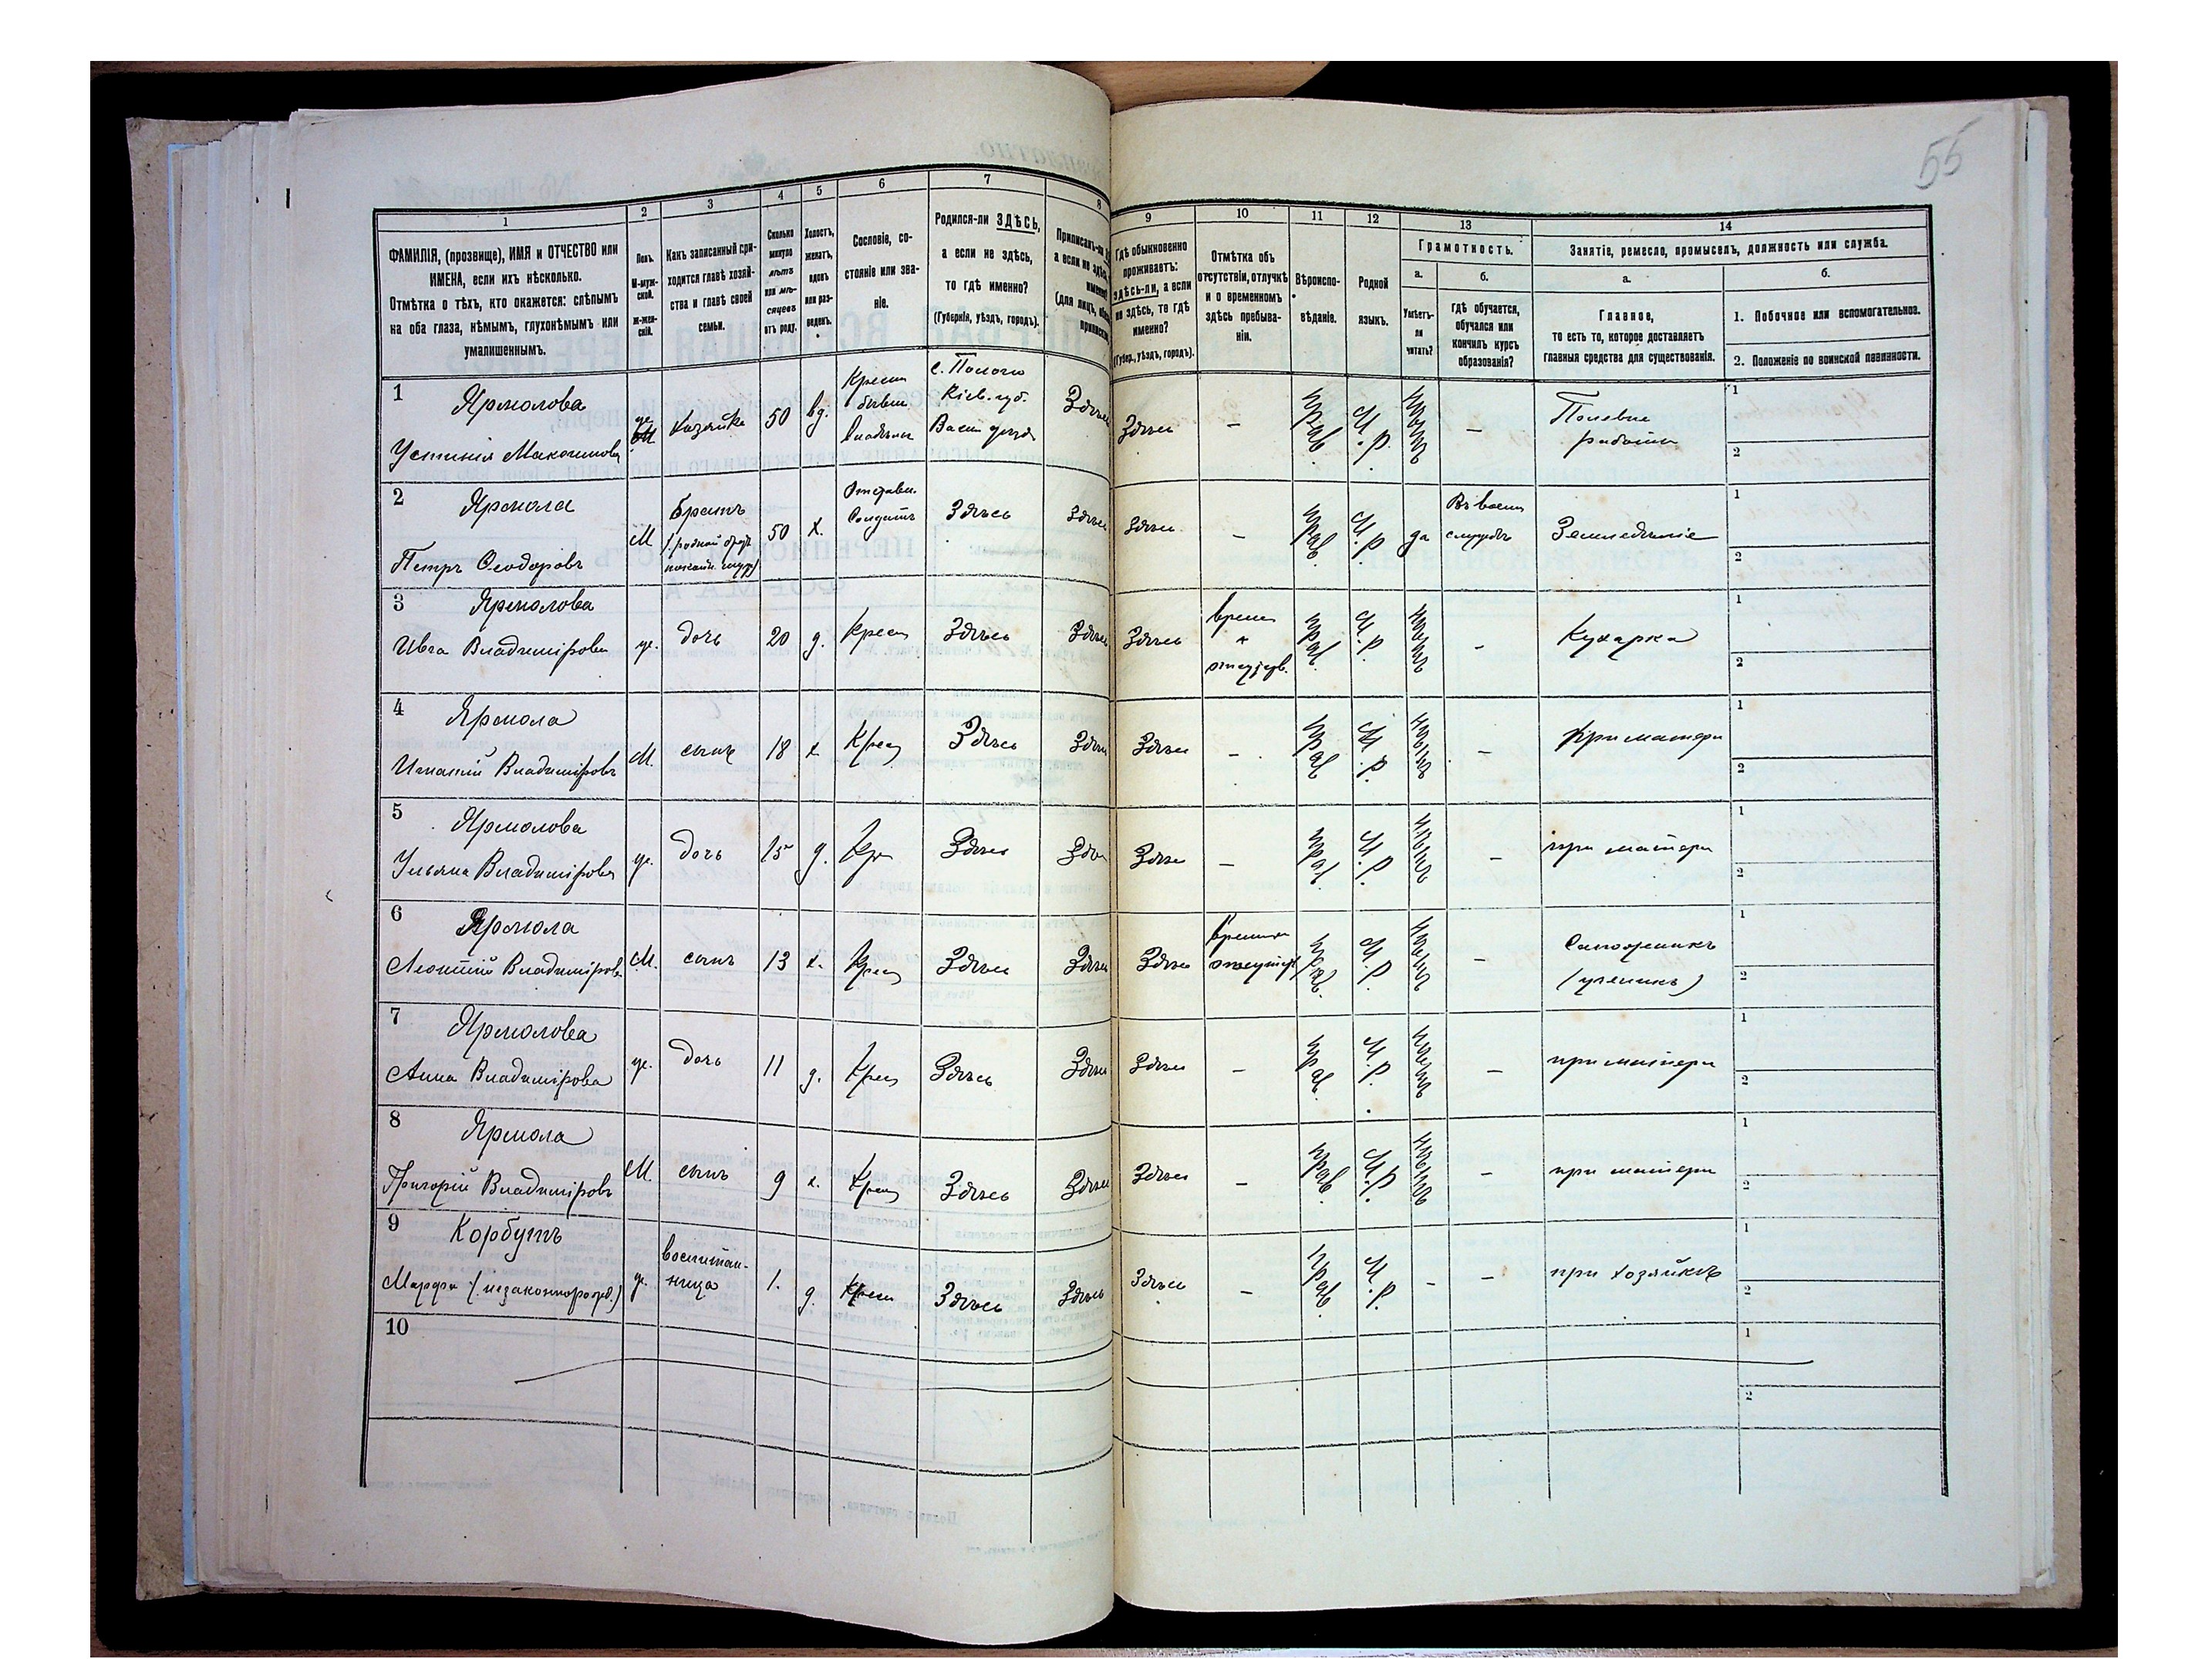 55
1 2 3 4 5 6 7 8
ФАМИЛІЯ, (прозвище), ИМЯ и ОТЧЕСТВО или
ИМЕНА, если ихъ нѣсколько.
Отмѣтка о тѣхъ, кто окажется: слѣпымъ
на оба глаза, нѣмымъ, глухонѣмымъ или
умалишеннымъ.
Полъ.
М-муж-
ской.
Ж-жен-
скій.
Какъ записанный при-
ходится главѣ хозяй-
ства и главѣ своей
семьи.
Сколько
минуло
лѣтъ
или мѣ-
сяцевъ
отъ роду.
Холостъ,
женатъ,
вдовъ
или раз-
веденъ.
Сословіе, со-
стояніе или зва-
ніе.
Родился-ли ЗДѢСЬ,
а если не здѣсь,
то гдѣ именно?
(Губернія, уѣздъ, городъ).
Приписанъ-ли
а если не здѣсь
(для лицъ,
9 10 11 12 13 14
Гдѣ обыкновенно
проживаетъ:
здѣсь-ли, а если
не здѣсь, то гдѣ
именно?
(Губер., уѣздъ, городъ).
Отмѣтка объ
отсутствіи, отлучкѣ
и о временномъ
здѣсь пребыва-
ніи.
Вѣроиспо-
вѣданіе.
Родной
языкъ.
Грамотность.
а.
Умѣетъ-
ли
читать?
б.
Гдѣ обучается,
обучался или
кончилъ курсъ
образованія?
Занятіе, ремесло, промыселъ, должность или служба.
а.
Главное,
то есть то, которое доставляетъ
главныя средства для существованія.
б.
1. Побочное или вспомогательное.
2. Положеніе по воинской повинности.
1 Ярмолова
Устинія Максимова
ж. Хазяйка 50 вд.
Крест
бывш
Владѣльч
с. Пологи
Кіев. губ.
Васил уѣзд
Здѣсь Здѣсь - прав. М.р. нѣтъ -
Полевые
работы
1
2
2 Ярмола
Петръ Ѳеодоровъ
М
Братъ
50 х.
Отставн.
Солдатъ
Здѣсь Здѣсь Здѣсь - прав. М.р. да
Въ воен
службѣ
Земледѣліе
1
2
3 Ярмолова
Ивга Владимірова
ж. дочь 20 д. Крест Здѣсь Здѣсь Здѣсь
времен
отсутств.
прав. М.р. нѣтъ - Кухарка
1
2
4 Ярмола
Игнатій Владиміровъ
М. сынъ 18 х Крест Здѣсь Здѣсь Здѣсь - прав М.р. нѣтъ - При матери
1
2
5 Ярмолова
Ульяна Владимірова
ж. дочь 15 д. Кре Здѣсь Здѣсь Здѣсь - прав. М.р. нѣтъ - при матери
1
2
6 Ярмола
Леонтій Владиміровъ
М. сынъ 13 х. Крест Здѣсь Здѣсь Здѣсь
времен
отсутст
прав. М.р. нѣтъ -
Сапожникъ
(ученикъ)
1
2
7 Ярмолова
Анна Владимірова
ж. дочь 11 д. Крест Здѣсь Здѣсь Здѣсь - прав. М.р. нѣтъ - при матери
1
2
8 Ярмола
Григорій Владиміровъ
М. сынъ 9 х. Крест Здѣсь Здѣсь Здѣсь - прав. М.р. нѣтъ - при матери
1
2
9 Корбутъ
Марфа (незаконнорожд.)
ж.
воспитан-
ница
1. д. Крест Здѣсь Здѣсь Здѣсь - прав. М.р. - - при хозяйкѣ
1
2
10
1
2